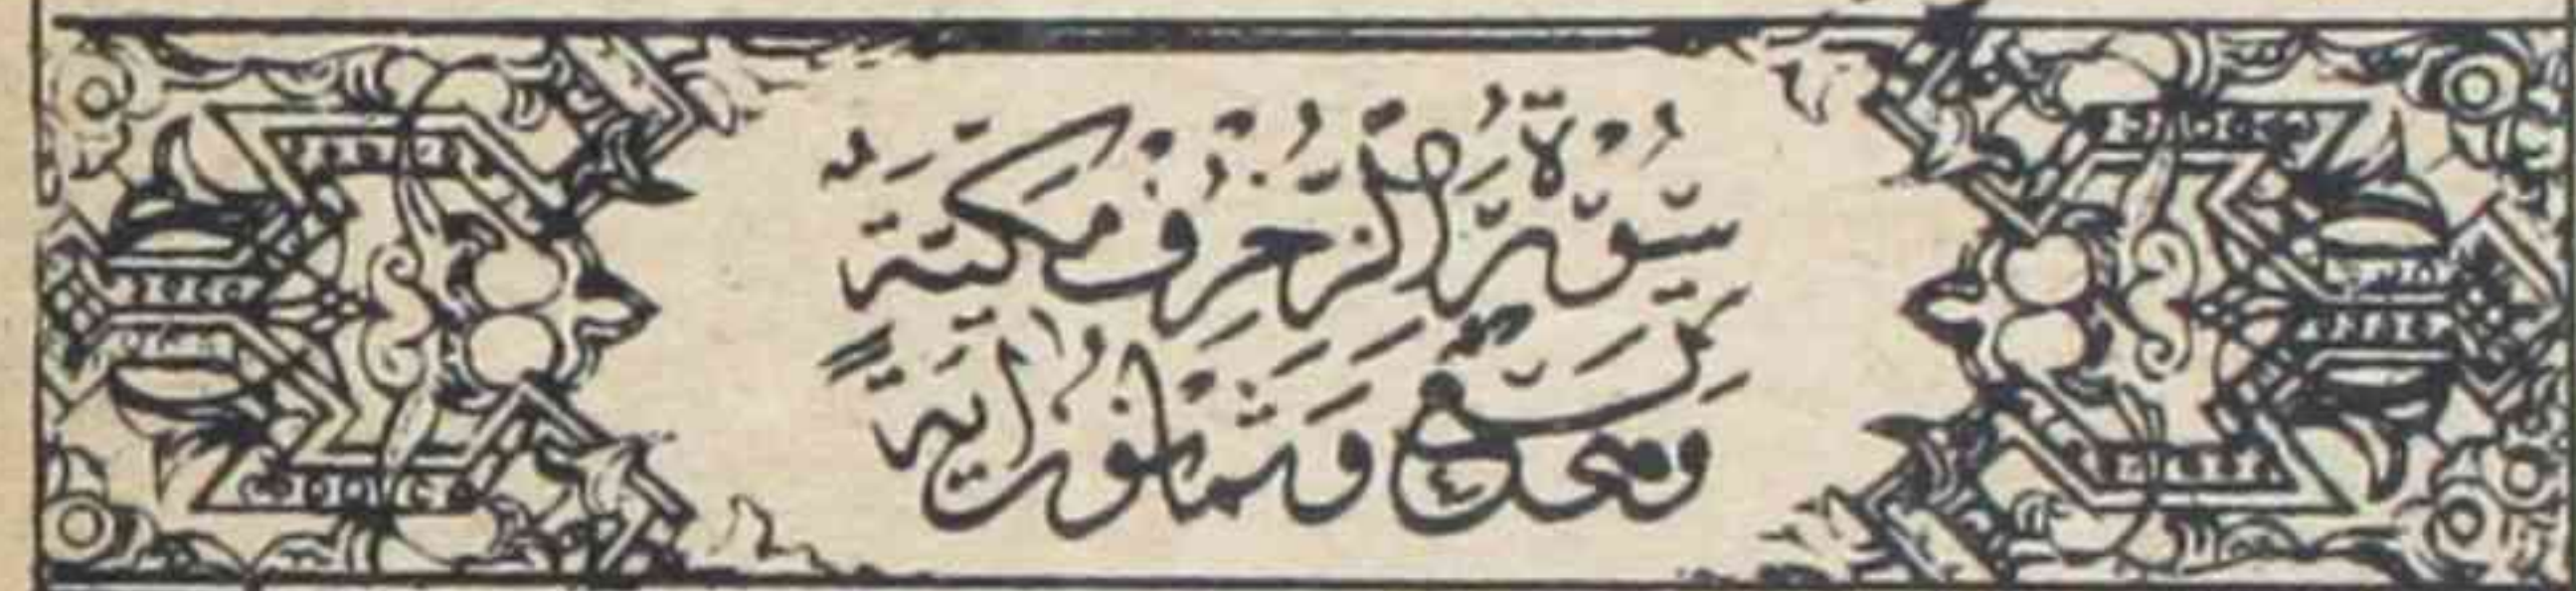 سُوْرَةُ الزُّخْرُفِ مَكِّيَّةٌ
وَهِيَ تِسْعٌ وَثَمَانُوْنَ اٰيَةً